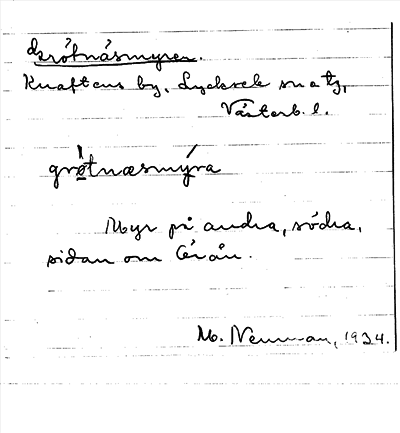 Grötnäsmyren.
Knaftens by, Lycksele sn o tg,
Västerb. l.
grø̀tnæsmýra
Myr på andra, södra,
sidan om Örån.
M. Neuman, 1934.